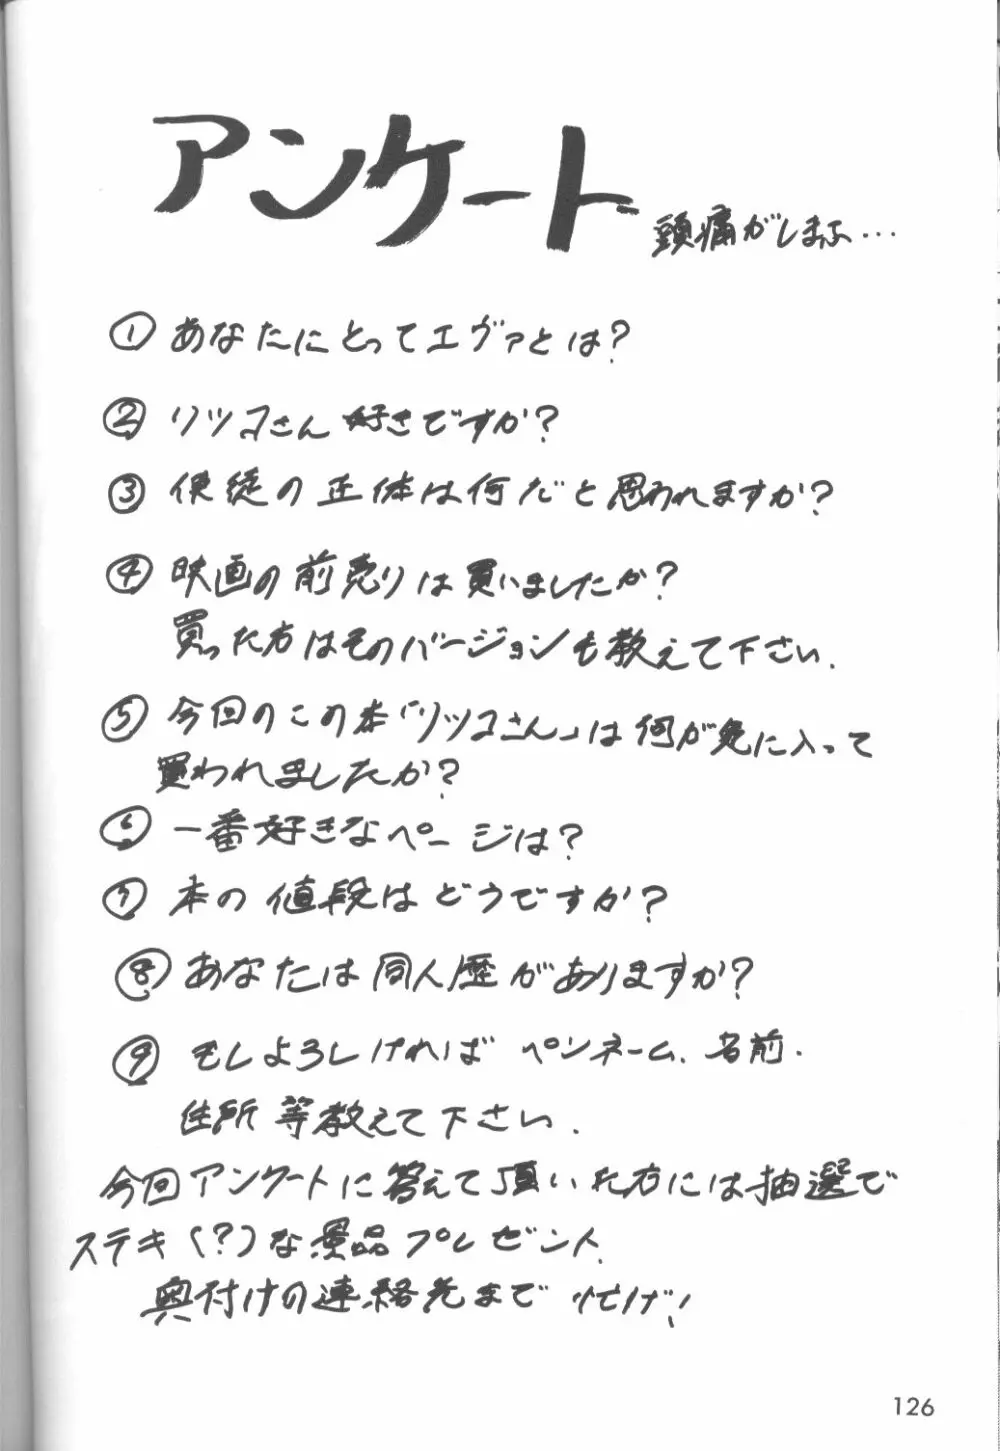 アンケート
頭痛がしまふ…
① あなたにとってエヴァとは?
② リツコさん好きですか?
③ 使徒の正体は何だと思われますか?
④ 映画の前売りは買いましたか?
買った方はそのバージョンも教えて下さい.
⑤ 今回のこの本「リツコさん」は何が気に入って
買われましたか?
⑥ 一番好きなページは?
⑦ 本の値段はどうですか?
⑧ あなたは同人歴がありますか?
⑨ もしよろしければペンネーム.名前.
住所等教えて下さい.
今回アンケートに答えて頂いた方には抽選で
ステキ(?)な景品プレゼント.
奥付けの連絡先まで
126